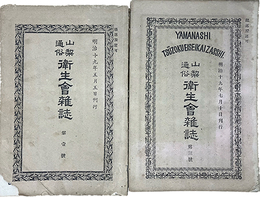 明治十九年五月五日刊行
山梨
通俗
衛生會雑誌
第壹號
YAMANASHI
TSŪZOKUEISEIKAIZASSHI
明治十九年七月十日刊行
山梨
通俗
衛生會雑誌